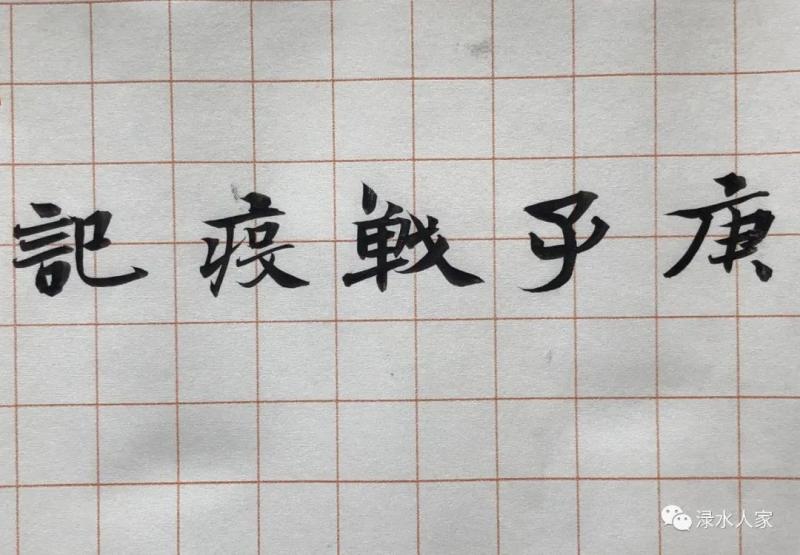 庚子戦疫記
渌水人家